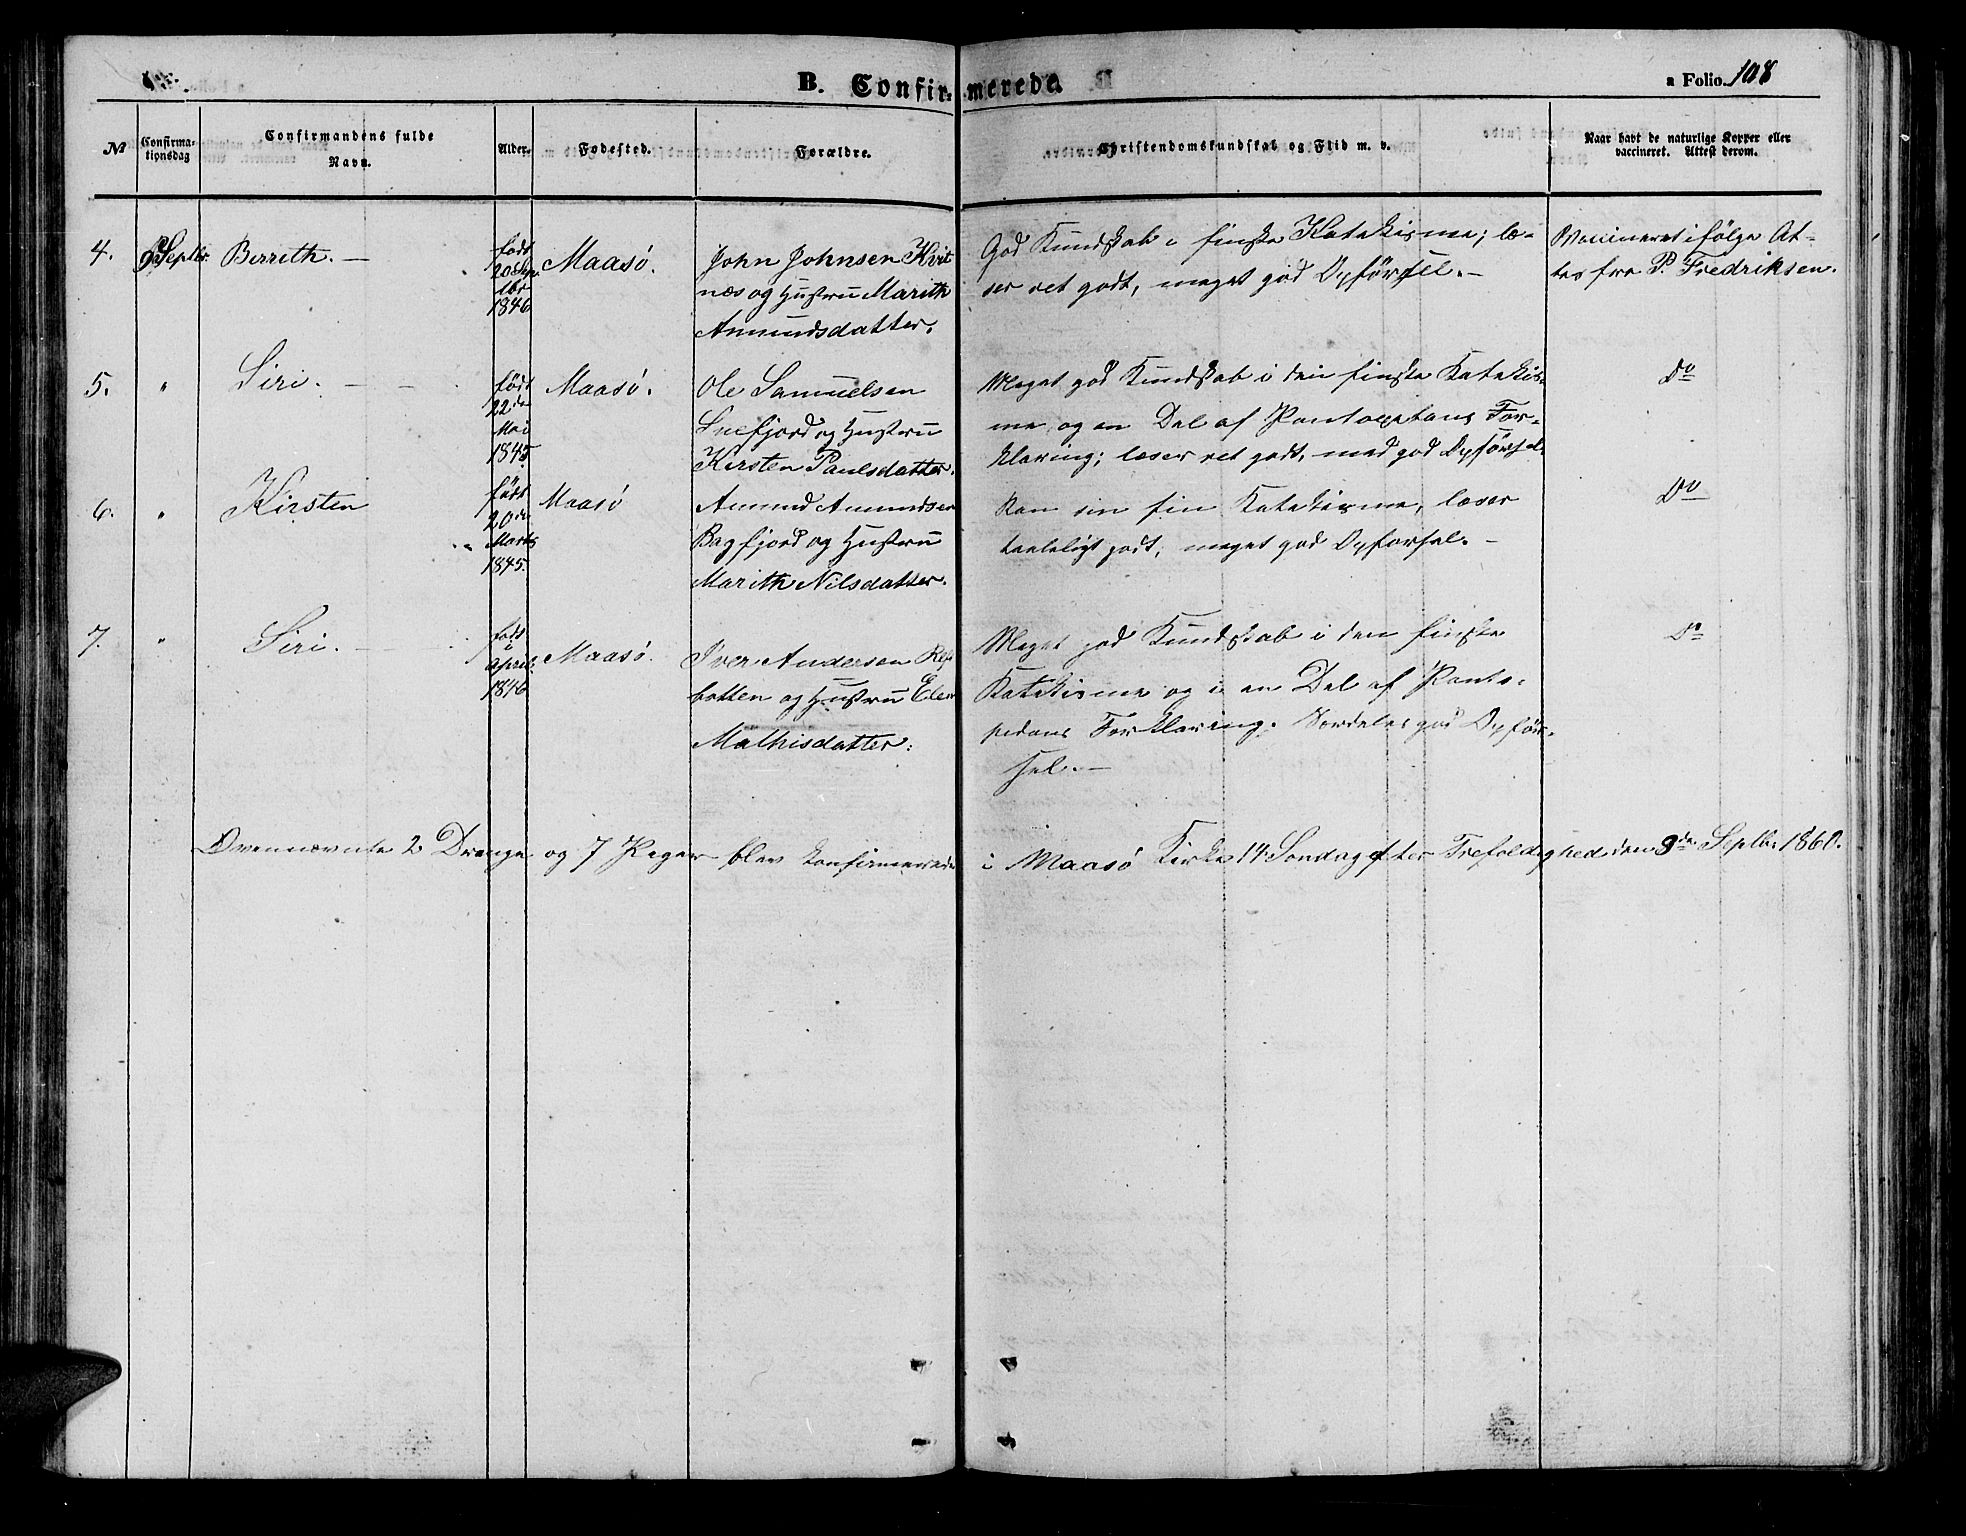 B. Confirmerede.
a Folio 108
№
Confirma-
tionsdag
Confirmandens fulde
Navn.
Alder.
Fødested.
Forældre.
Christendomskundskab og Flid m. v.
Naar havt de naturlige Kopper eller
vaccineret. Attest derom.
4. Septbr. Berrith. —
født
20 Sep-
tbr
1846
Maasø.
John Johnsen Kvit
næs og Hustru Marith
Amundsdatter.
God Kundskab i finske Katekisme; læ-
ser ret godt, meget god Opførsel. —
Vaccineret ifølge At-
tes fra P. Fredriksen.
5. " Siri. — —
født
22de
Mai
1845
Maasø.
Ole Samuelsen
Snefjord og Hustru
Kirsten Paulsdatter.
Meget god Kundskab i den finske Katekis-
me og en Del af Pontoppidans For-
klaring; læser ret godt, med god Opførsel.
Do
6. " Kirsten
født
20de
Marts
1845.
Maasø
Amund Amundsen
Bagfjord og Hustru
Marith Nilsdatter.
Kan sin fin Katekisme, læser
taaleligt godt, meget god Opførsel. —
Do
7. " Siri. —
født
i
April
1846
Maasø.
Iver Andersen Ref
botten og Hustru Elen
Mathisdatter.
Meget god Kundskab i den finske
Katekisme og i en Del af Ponto-
pidans Forklaring. Særdeles god Opfør-
sel. —
Do
Ovennævnte 2 Drenge og 7 Piger blev konfirmerede i Maasø Kirke 14 Søndag efter Trefoldighed den 9de Septbr. 1860.